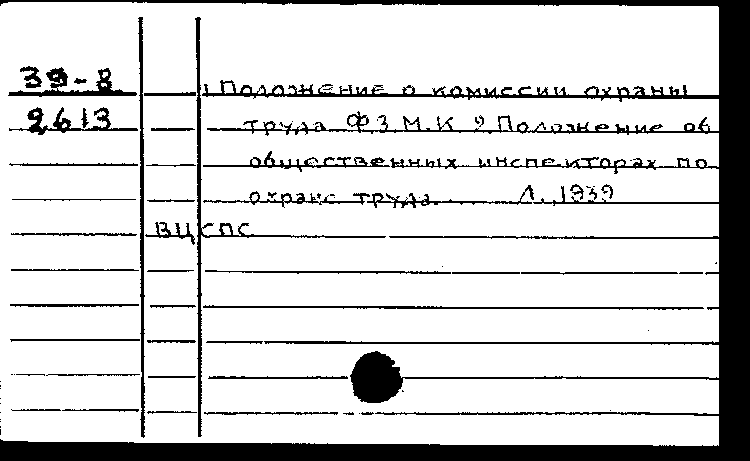 39-8
2613
1 Положение о комиссии охраны
труда ФЗМ.К 2 Положение об
общественных инспекторах по
охране труда. Л., 1939
ВЦСПС